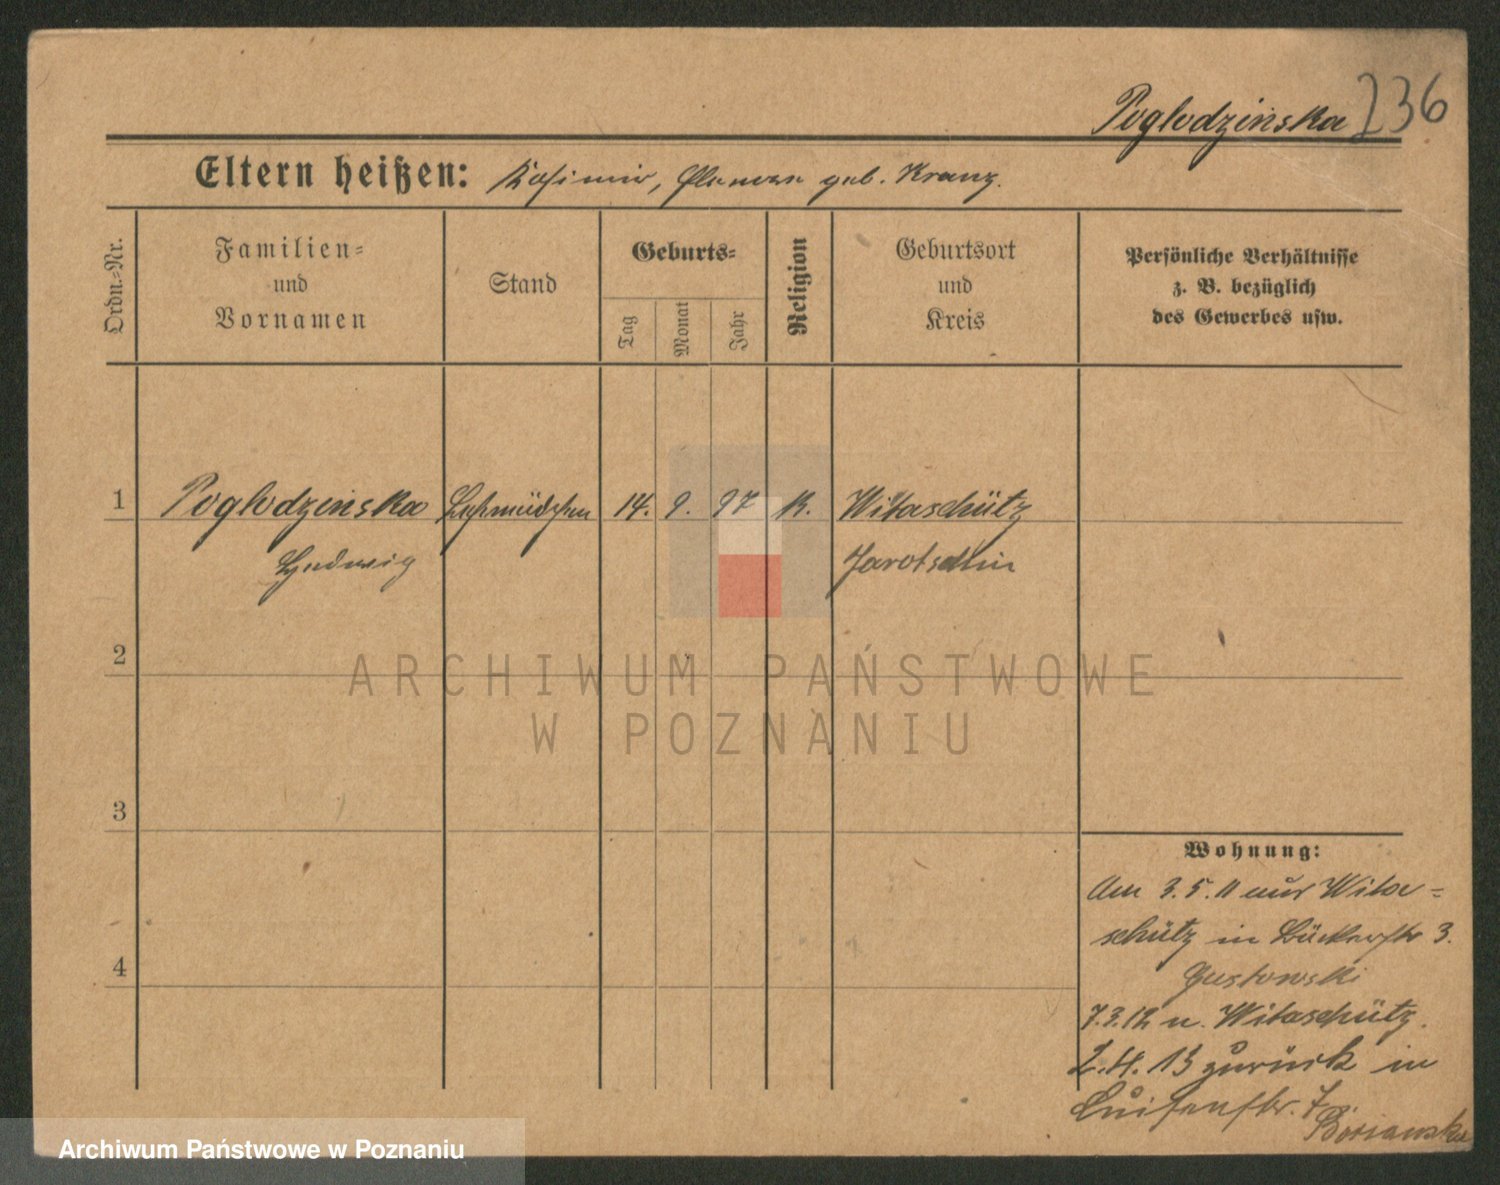 Poglodzinska 236
Eltern heißen: Kasimir, geb. Kranz.
Ordn.=Nr.
Familien=
und
Vornamen
Stand
Geburts=
Tag
Monat
Jahr
Religion
Geburtsort
und
Kreis
Persönliche Verhältnisse
z. B. bezüglich
des Gewerbes usw.
1 Poglodzinska Lehrmädchen 14. 9. 97 K. Witaschütz
Ludwig Jarotschin
2
3
4
Wohnung:
Am 3.5.11 aus Wita=
schütz in Bäckerstr 3.
Gustowski
7.3.12 n. Witaschütz.
2.4.13 zurück in
Luisenstr. 7,
ARCHIWUM PAŃSTWOWE
W POZNANIU
Archiwum Państwowe w Poznaniu